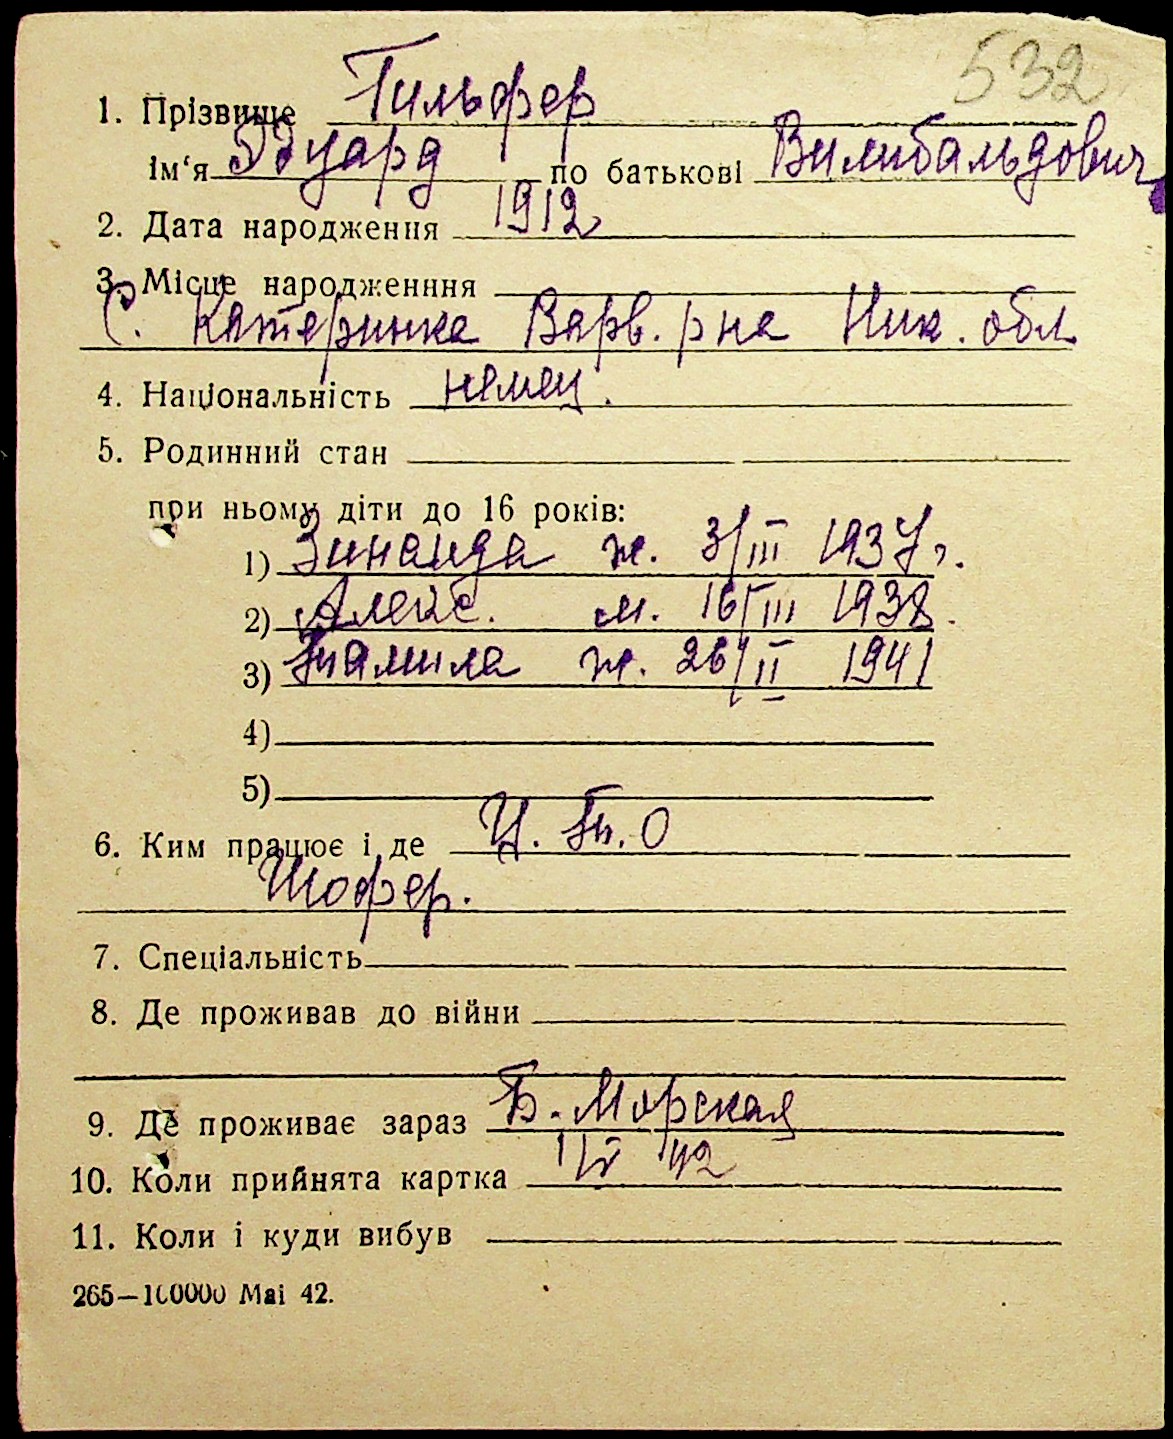 532
1. Прізвище Гильфер
ім'я Эдуард по батькові Вилибальдович
2. Дата народження 1912
3. Місце народженння
С. Катеринка Варв. р на Ник. обл.
4. Національність немец.
5. Родинний стан
при ньому діти до 16 років:
1) Зинаида ж. 3/III 1937 г.
2) Алекс. м. 16/III 1938.
3) ж. 26/II 1941
4)
5)
6. Ким працює і де
Шофер.
7. Спеціальність
8. Де проживав до війни
9. Де проживає зараз Б. Морская
10. Коли прийнята картка 1/V 42
11. Коли і куди вибув
265—100000 Mai 42.